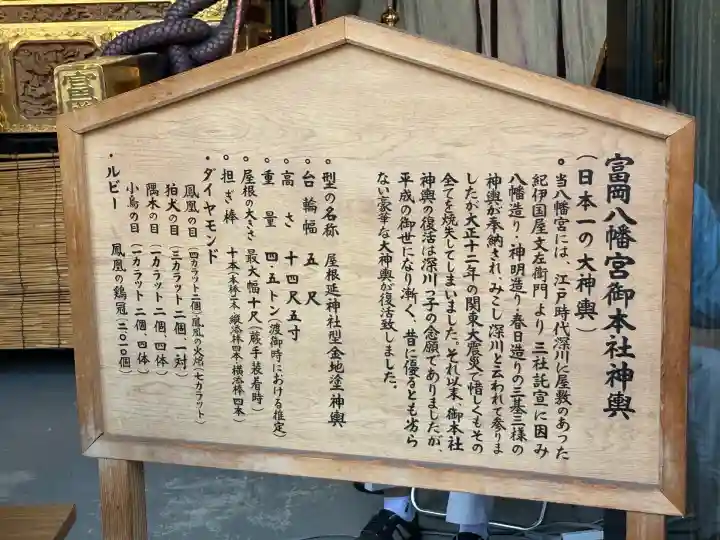 富岡八幡宮御本社神輿
(日本一の大神輿)
・当八幡宮には、江戸時代深川に屋敷のあった
紀伊国屋文左衛門より三社託宣に因み
八幡造り・神明造り・春日造りの三基三様の
神輿が奉納され、みこし深川と云われて参りま
したが大正十二年の関東大震災で惜しくもその
全てを焼失してしまいました。それ以来、御本社
神輿の復活は深川っ子の念願でありましたが、
平成の御世になり漸く、昔に優るとも劣ら
ない豪華な大神輿が復活致しました。
・型の名称 屋根延神社型金地塗神輿
・台輪幅 五尺
・高さ 十四尺五寸
・重量 四・五トン(渡御時における推定)
・屋根の大きさ 最大幅十尺(蕨手装着時)
・担ぎ棒 十本(本棒二本・縦添棒四本・横添棒四本)
・ダイヤモンド
鳳凰の目 (四カラット二個)鳳凰の火焔(七カラット)
狛犬の目 (三カラット二個、一対)
隅木の目 (一カラット二個、四体)
小鳥の目 (一カラット二個、四体)
・ルビー 鳳凰の鶏冠(二〇一〇個)
富